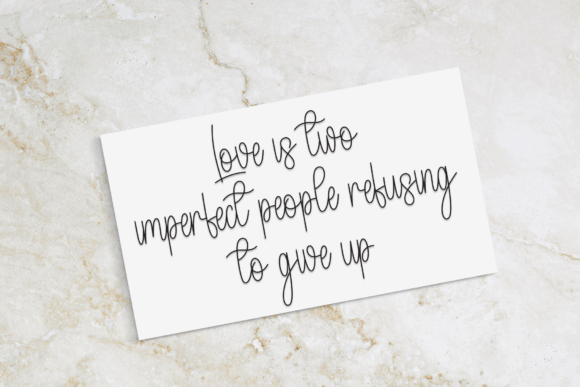 Love is two
imperfect people refusing
to give up